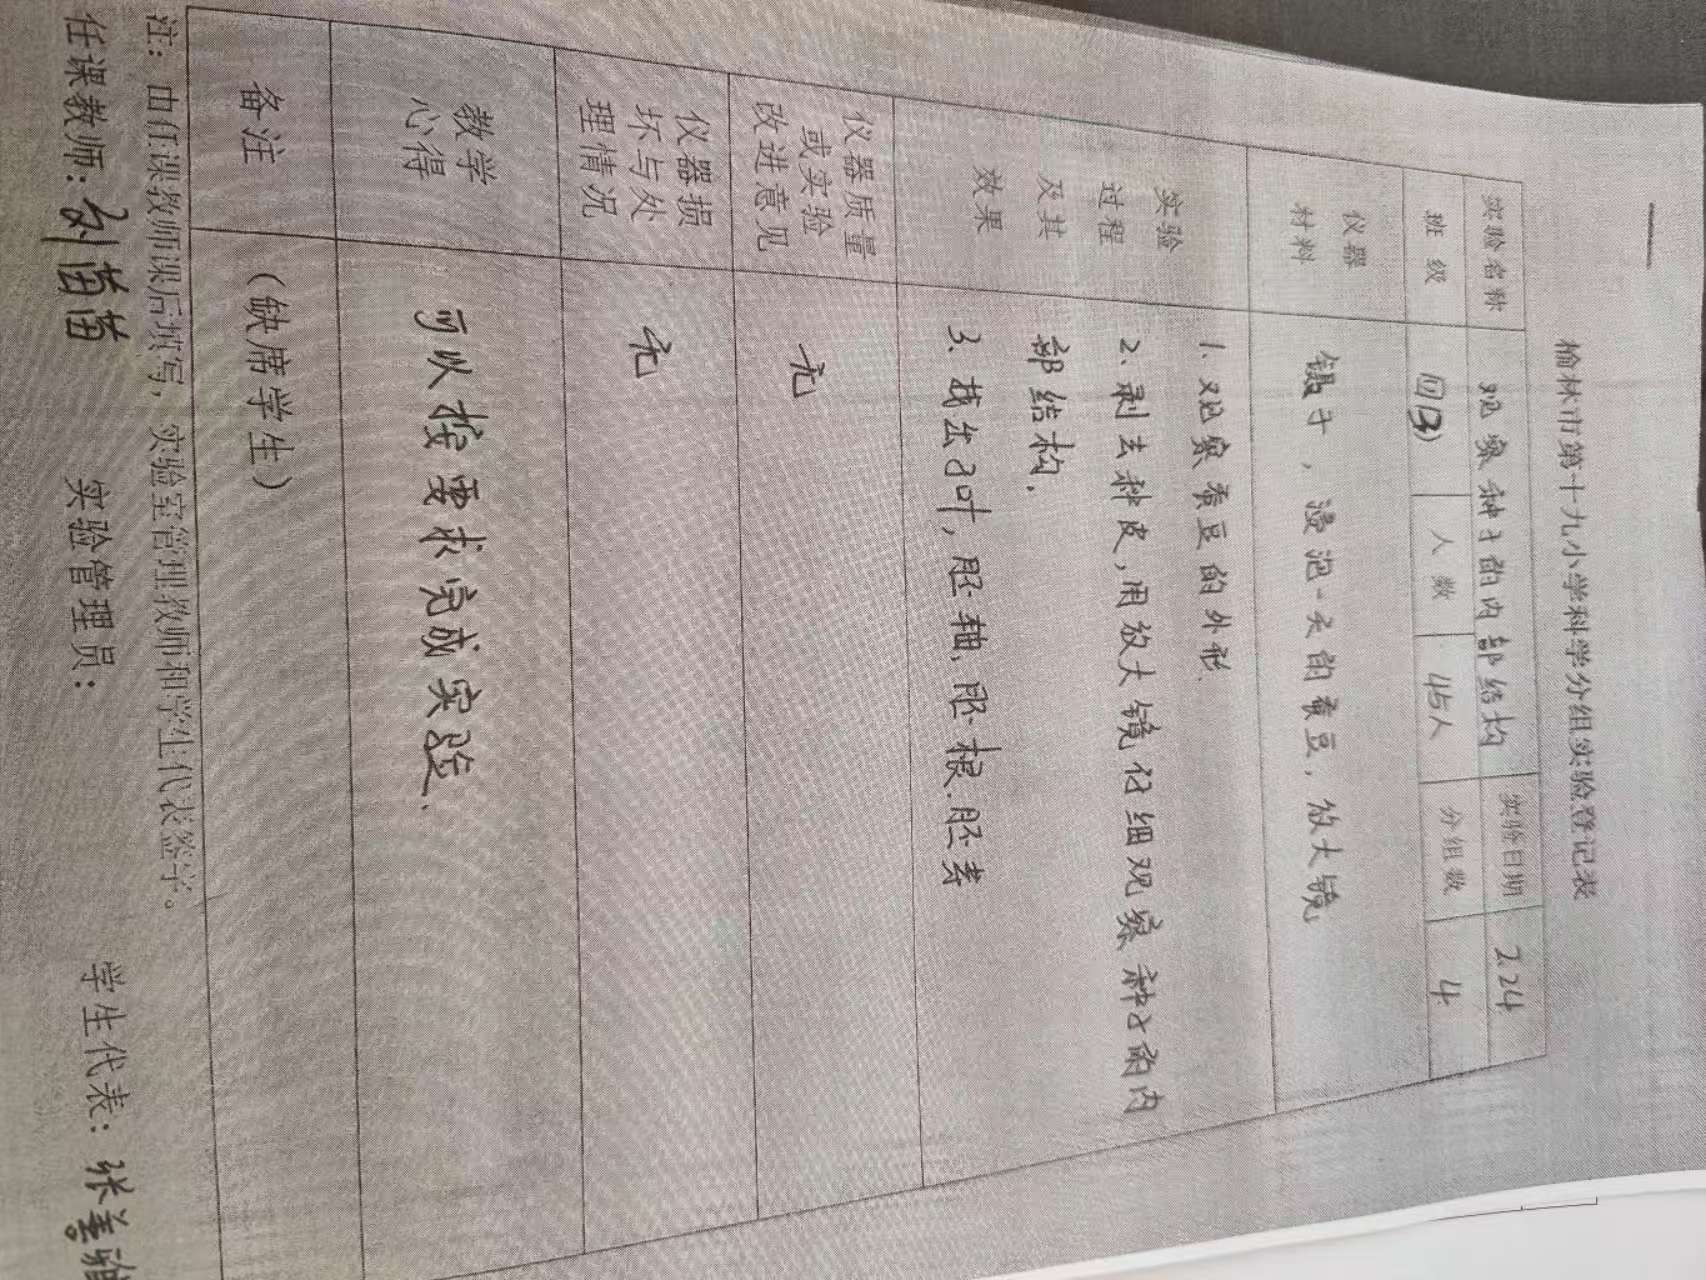 榆林市第十九小学科学分组实验登记表
实验名称 观察种子的内部结构 实验日期 2.24
班级 四(3) 人数 45人 分组数 4
仪器
材料
镊子，浸泡一天的蚕豆，放大镜
实验
过程
及其
效果
1.观察蚕豆的外形.
2.剥去种皮，用放大镜仔细观察种子的内
部结构.
3.找出子叶，胚轴、胚根.胚芽
仪器质量
或实验
改进意见
无
仪器损
坏与处
理情况
无
教学
心得
可以按要求完成实验.
备注
（缺席学生）
注：由任课教师课后填写，实验室管理教师和学生代表签字。
任课教师：刘苗苗 实验管理员： 学生代表：张